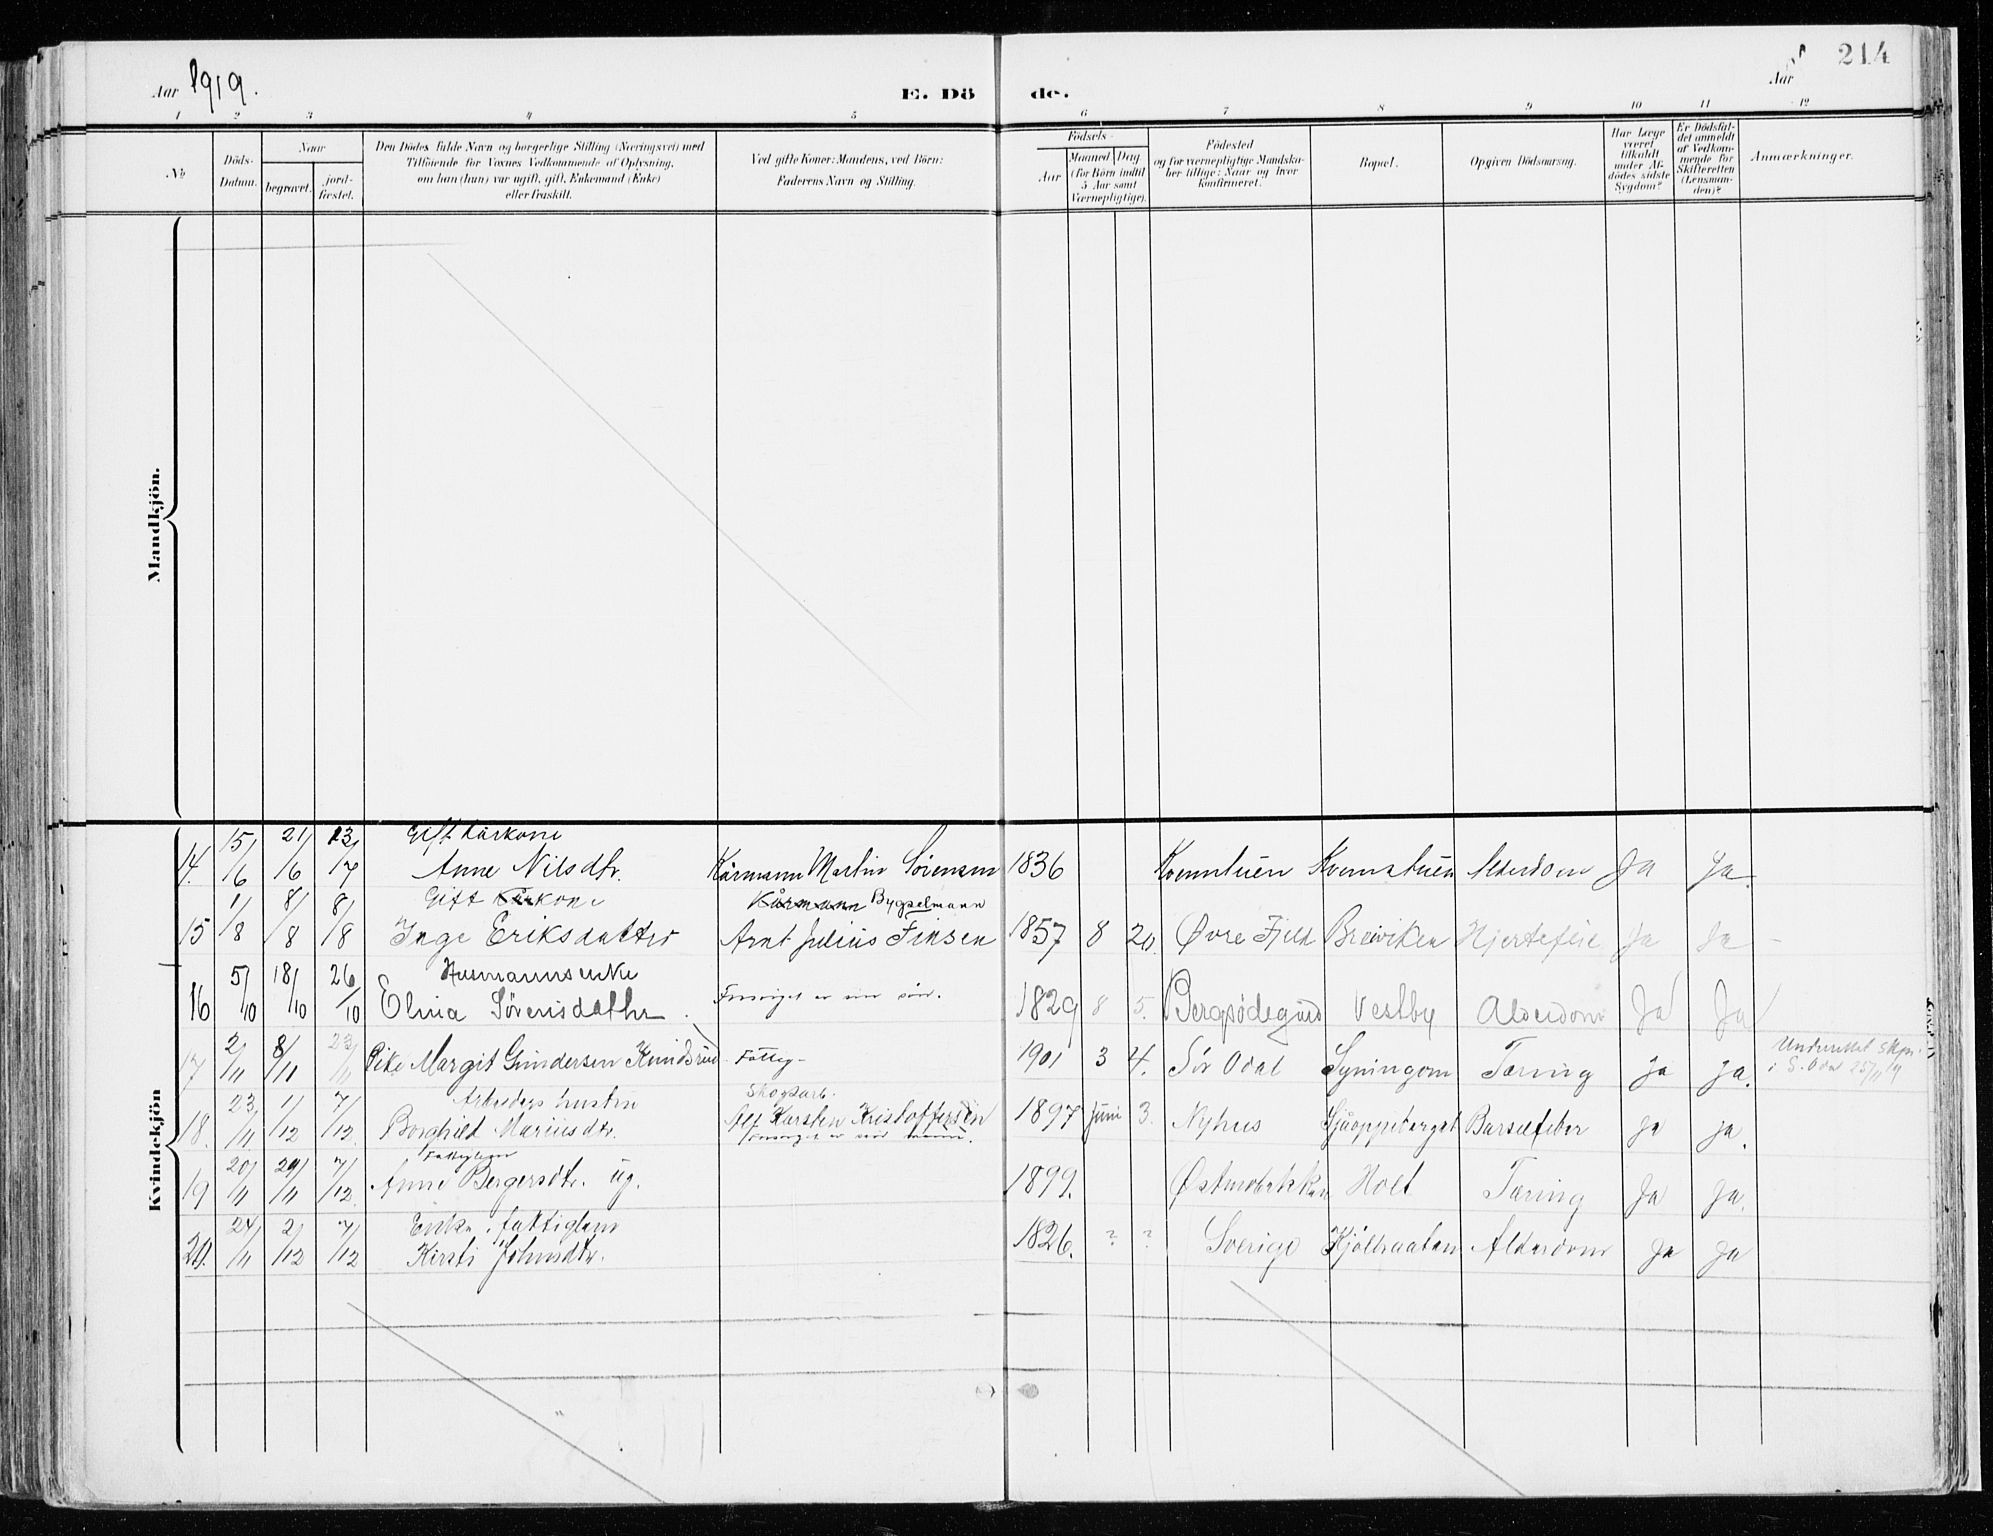 Aar 1919.
E. Dö de.
Aar
214
1 2 3 4 5 6 7 8 9 10 11 12
No
Döds-Datum.
Naar
begravet.
jord-fæstet.
Den Dödes fulde Navn og borgerlige Stilling (Næringsvei) med
Tilföiende for Voxnes Vedkommende af Oplysning,
om han (hun) var ugift, gift, Enkemand (Enke)
eller fraskilt.
Ved gifte Koner: Mandens, ved Börn:
Faderens Navn og Stilling.
Födsels-
Aar
Maaned Dag
(for Börn indtil
5 Aar samt
Værnepligtige).
Födested
og for værnepligtige Mandska-
ber tillige: Naar og hvor
konfirmeret.
Bopæl.
Opgiven Dödsaarsag.
Har Læge
været
tilkaldt
under Af-
dödes sidste
Sygdom?
Er Dödsfal-
det anmeldt
af Vedkom-
mende for
Skifteretten
(Lensman-
den)?
Anmærkninger.
Mandkjön.
Kvindekjön
Gift Kårkone
14. 15/6 21/6 13/7 Anne Nilsdtr. Kårmann Martin Sörensen 1836 Alderdom Ja Ja.
Gift Kårkone Kårmann Bygselmann
15 1/8 8/8 8/8 Inge Eriksdatter Arnt Julius Finsen 1857 8 20. Øvre Fjeld Breiviken Hjertefeil Ja Ja
Husmannsenke
16 5/10 18/10 26/10 Elina Sörensdatter. Forsörget av sin sön. 1829 8 5. Bergsödegard Vestby Alderdom Ja Ja
17 2/11 8/11 23/11 Pike Margit Gundersen Knudsrud Fattig 1901 3 4. Sör Odal Tæring Ja Ja.
Underettet Skpr.
i S. Odal 25/11 19
Arbeiders hustru Skogsarb.
18. 23/11 1/12 7/12 Borghild Mariusdtr. Alf Karsten Kristoffersen 1897 Juni 3. Nyhus Sjåoppiberget Barselfeber Ja Ja.
Forsörget av sin mann.
Fattiglem
19 20/11 29/11 7/12 Anne Bergersdtr. ug. 1899. Østmobakken Holt Tæring Ja Ja.
Enke, fattiglem
20. 24/11 2/12 7/12 Kirsti Johnsdtr. 1826. ? ? Sverige Alderdom Ja Ja